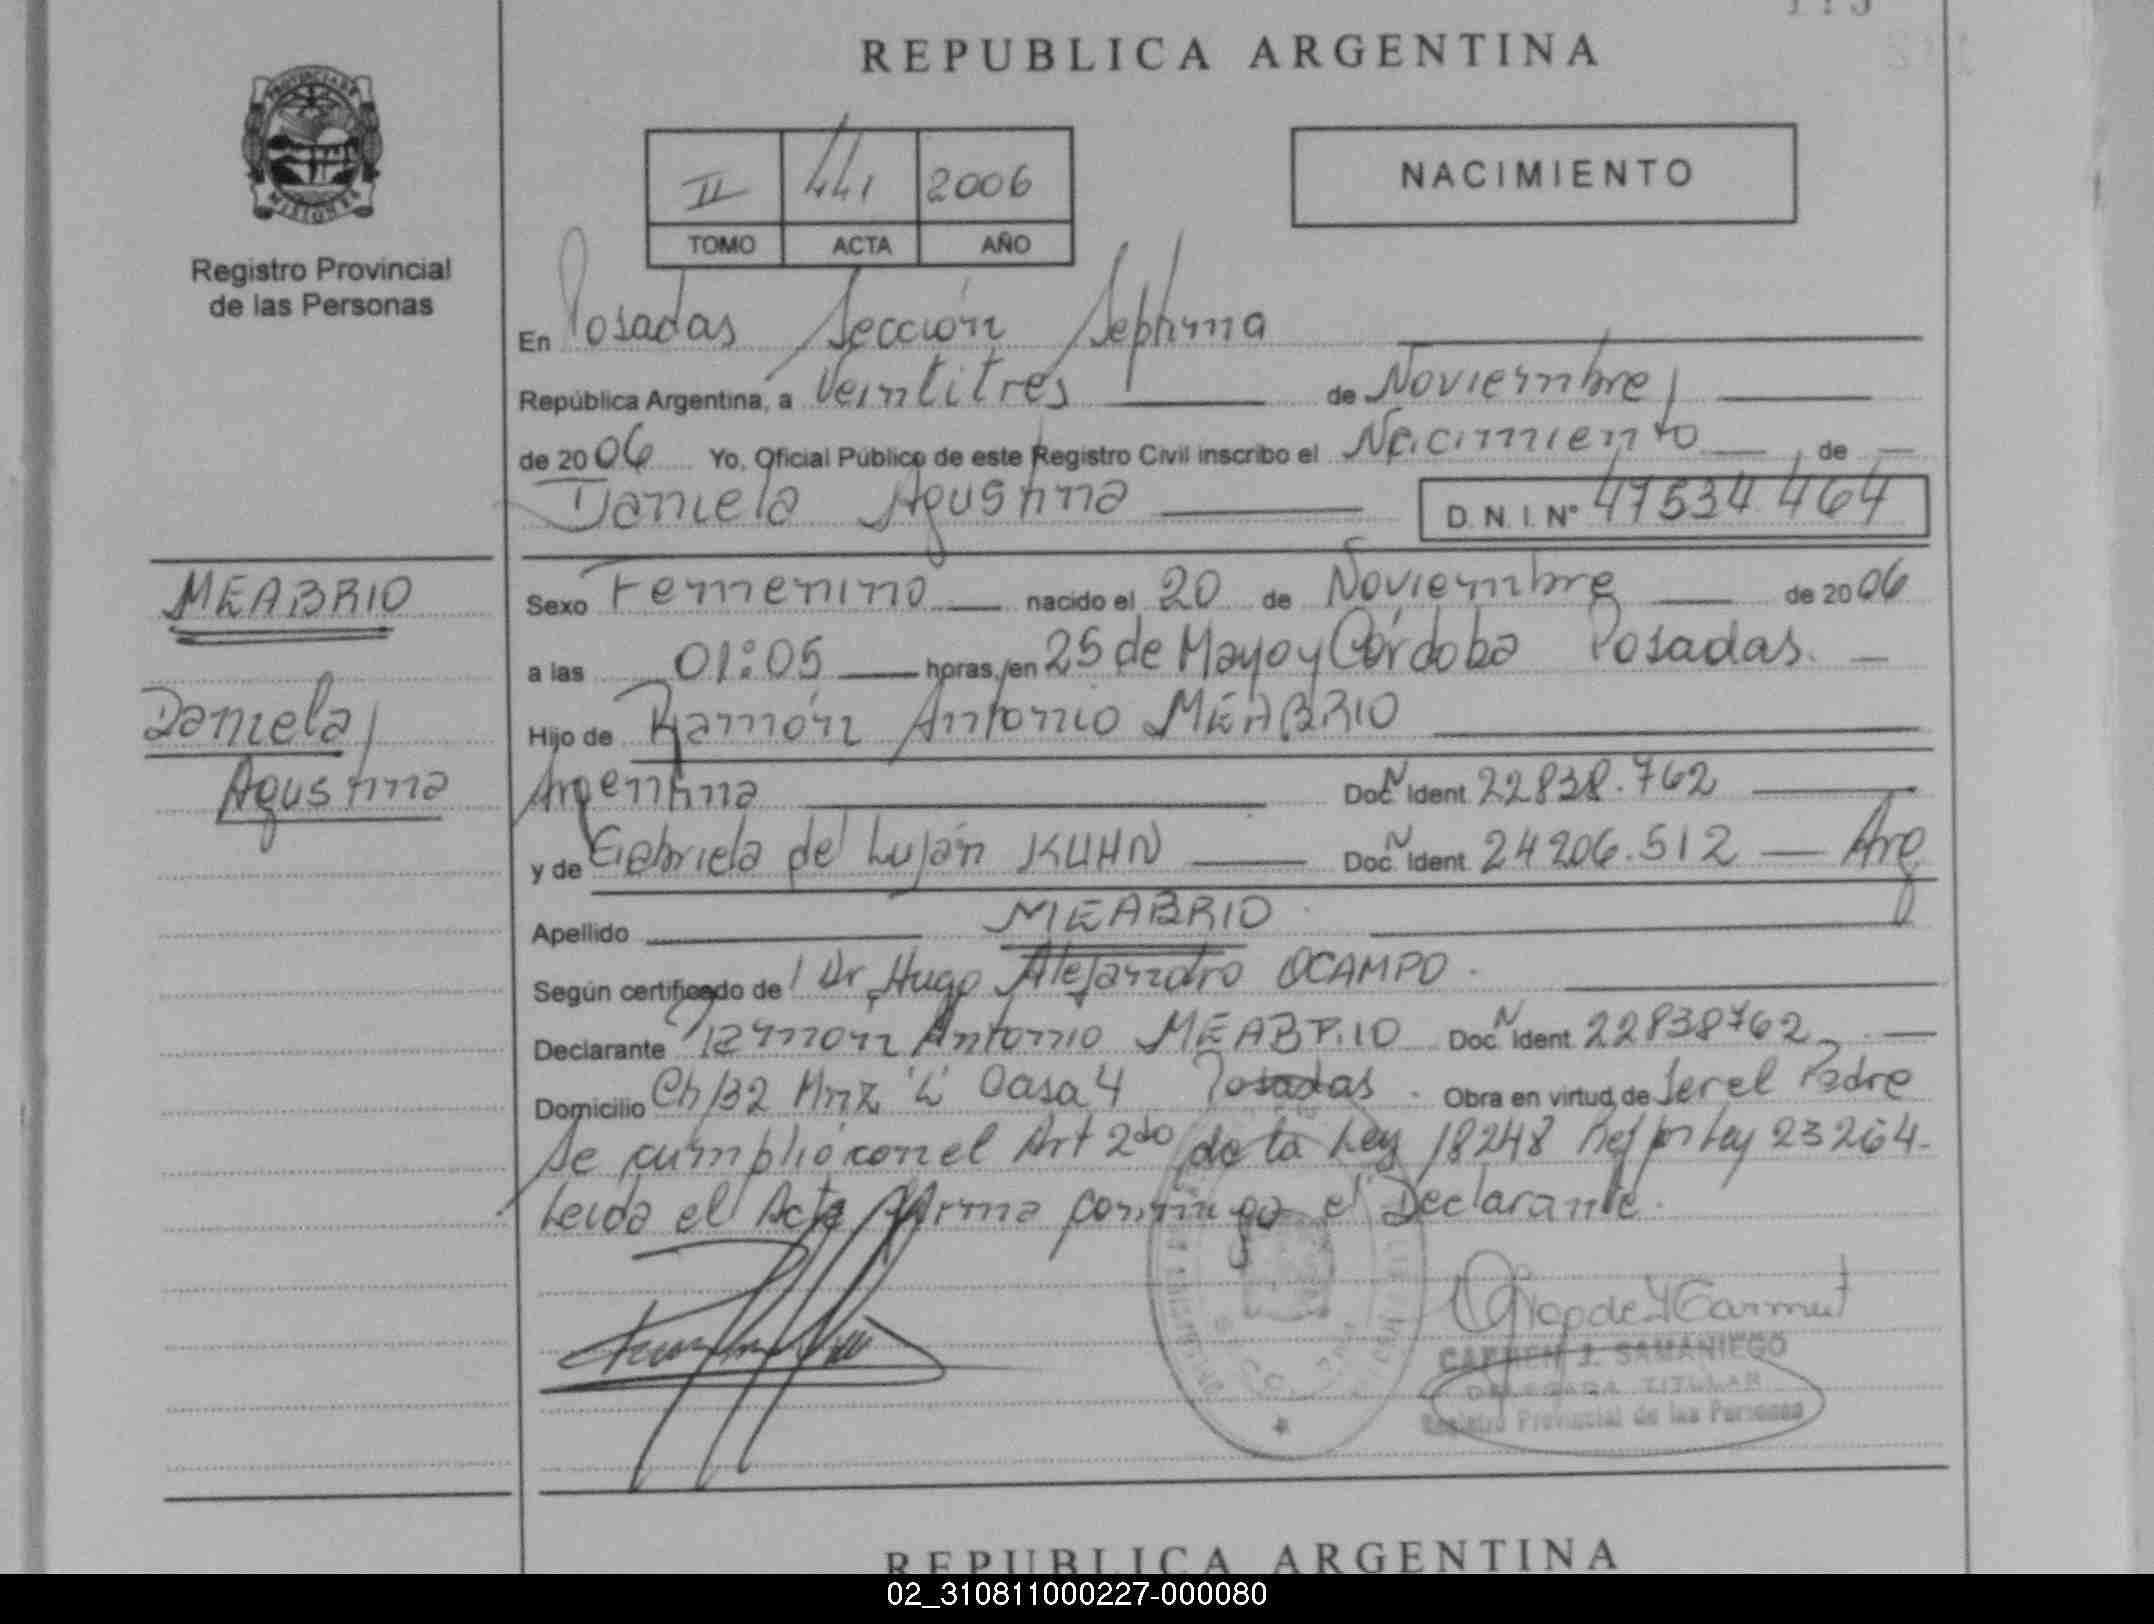 REPUBLICA ARGENTINA
PROVINCIA DE
MISIONES
Registro Provincial
de las Personas
II 441 2006
TOMO ACTA AÑO
NACIMIENTO
En Posadas Sección Septima
República Argentina, a Veintitres de Noviembre
de 2006 Yo, Oficial Público de este Registro Civil inscribo el Nacimiento de
Daniela Agustina D.N.I. Nº 47534464
MEABRIO
Daniela
Agustina
Sexo Femenino nacido el 20 de Noviembre de 2006
a las 01:05 horas, en 25 de Mayo y Córdoba Posadas.
Hijo de Ramón Antonio MEABRIO
Argentina Doc. N Ident. 22838.762
y de Gabriela del Luján KUHN Doc. N Ident. 24206.512 — Arg
Apellido MEABRIO
Según certificado de Dr Hugo Alejandro OCAMPO.
Declarante Ramón Antonio MEABRIO Doc. N Ident. 22838762
Domicilio Ch 132 Mnz "L" Casa 4 Posadas. Obra en virtud de Ser el Padre
Se cumplió con el Art 2do de la Ley 18248 Ref por Ley 23264.
Leida el Acta firma conmigo el Declarante.
CARMEN J. SAMANIEGO
DELEGADA TITULAR
Registro Provincial de las Personas
REPUBLICA ARGENTINA
02_310811000227-000080